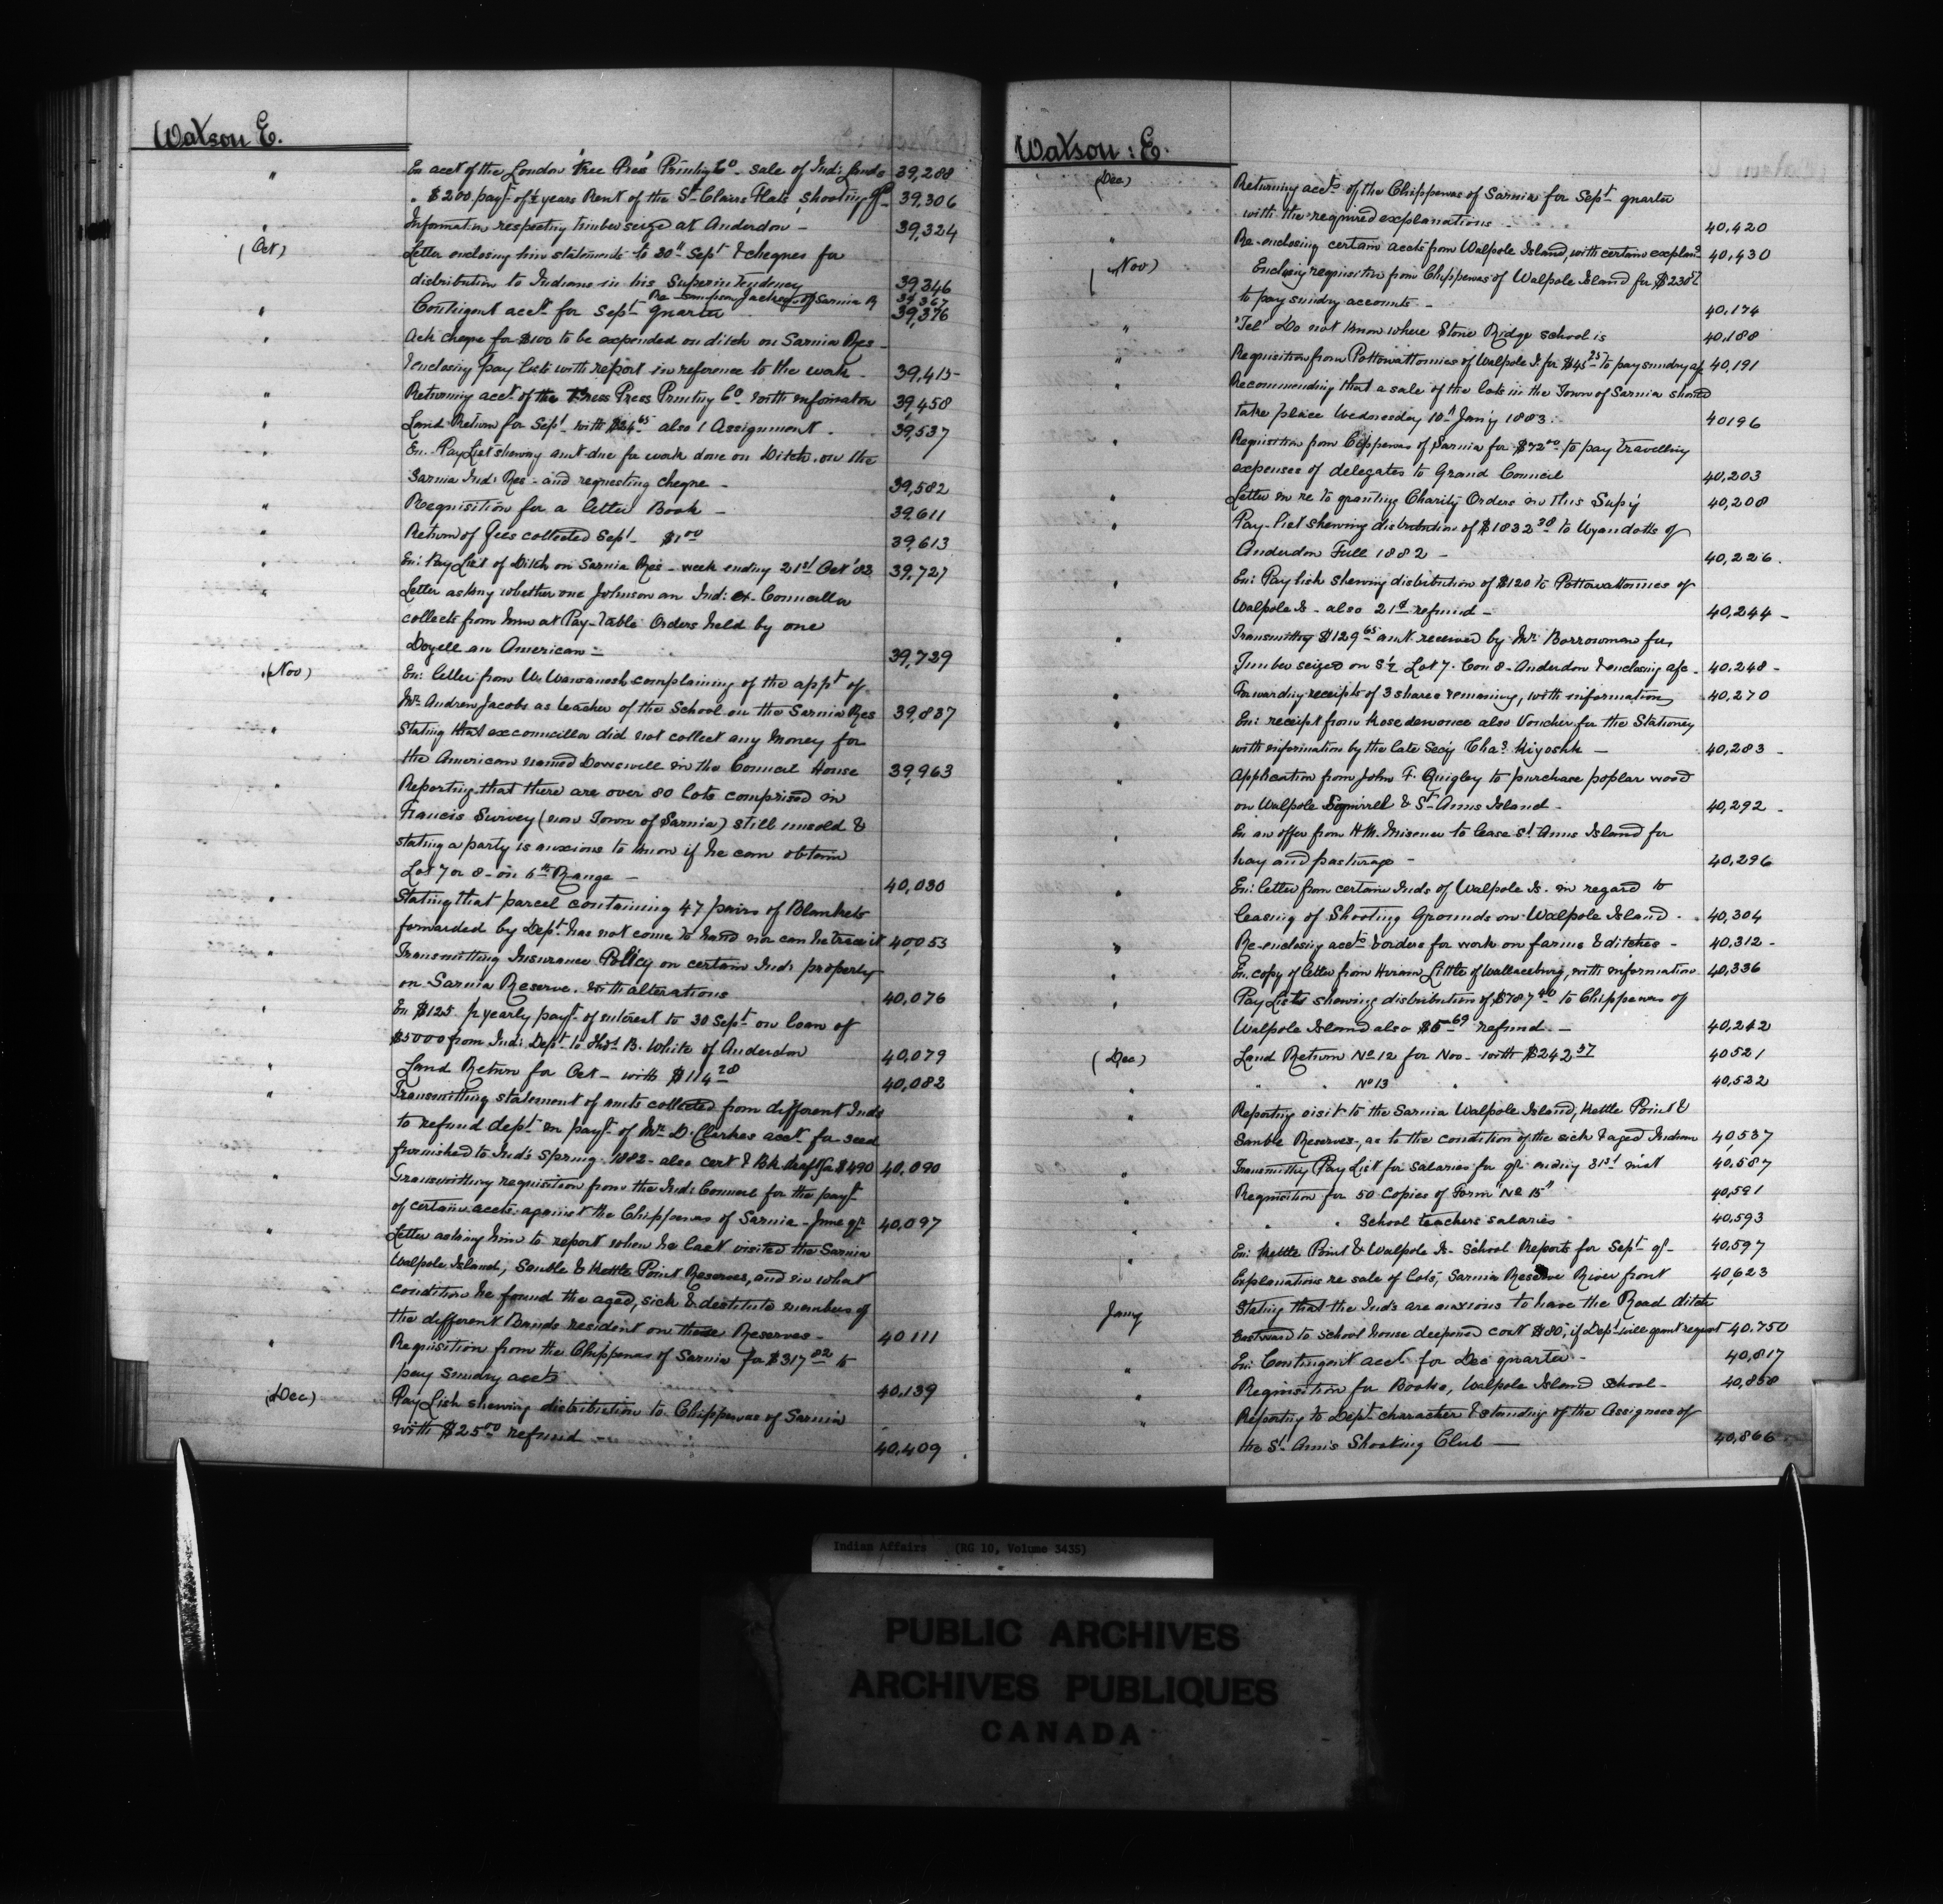 Watson E.
" En acct of the London Free Press Printing Co. sale of Ind: lands 39,288
" $200 payt of ½ years Rent of the St Clairs Flats shooting 39,306
" Information respecting timber seize at Anderdon - 39,324
(Oct) Letter enclosing him statements to 30th Sept & cheques for
distribution to Indians in his Superintendency 39,346
Re Simpson Jackson of Sarnia R 39,367
" Contingent acct for Sept quarter 39,376
" Ack cheque for $100 to be expended on ditch on Sarnia Res -
& enclosing pay lists with report in reference to the work - 39,415
" Returning acct of the Press Printing Co. with information 39,458
" Land Return for Sept with $24 65 also 1 Assignment . 39,537
" En. Pay List shewing amt due for work done on Ditch on the
Sarnia Ind: Res - and requesting cheque - 39,582
" Requisition for a letter Book - 39611
" Return of Fees collected Sept - $1 00 39,613
" En: Pay List of Ditch on Sarnia Res - week ending 21st Oct '82 39,727
" Letter asking whether one Johnson an Ind: ex-Councillor
collects from him at Pay-Table Orders held by one
Doyell an American - 39,739
(Nov) En: letter from W. Wawanosh complaining of the appt of
Mr Andrew Jacobs as teacher of the School on the Sarnia Res 39,837
" Stating that excouncillor did not collect any money for
the American named Dowswell in the Council House 39,963
" Reporting that there are over 80 lots comprised in
Francis Survey (now Town of Sarnia) still unsold &
stating a party is anxious to know if he can obtain
Lot 7 or 8 - on 6th Range - 40,030
" Stating that parcel containing 47 pairs of Blankets
forwarded by Dept has not come to hand nor can he trace it 40,053
" Transmitting Insurance Policy on certain Ind: property
on Sarnia Reserve. with alterations 40,076
" En $125 ½ yearly payt of interest to 30 Sept on loan of
$5000 from Ind: Dept to Thos B. White of Anderdon 40,079
" Land Return for Oct - with $114 28 40,082
" Transmitting statement of amts collected from different Inds
to refund dept in payt of Mr D. Clarkes acct for seed
furnished to Ind's Spring 1882 - also cert & Bk draft for $490 40,090
" Transmitting requisition from the Ind: Council for the payt
of certain accts against the Chippewas of Sarnia - June qr 40,097
" Letter asking him to report when he last visited the Sarnia
Walpole Island, Sauble & Kettle Point Reserves, and in what
condition he found the aged, sick & destitute members of
the different Bands resident on these Reserves - 40111
" Requisition from the Chippewas of Sarnia for $317 82 to
pay sundry accts 40,139
(Dec) Pay List shewing distribution to Chippewas of Sarnia
with $25 00 refund - 40,409
Watson : E.
(Dec) Returning accts of the Chippewas of Sarnia for Sept quarter
with the required explanations 40,420
" Re-enclosing certain accts from Walpole Island, with certain explans 40,430
(Nov) Enclosing requisition from Chippewas of Walpole Island for
to pay sundry accounts - 40,174
" "Tel" Do not know where Stone Ridge school is 40,188
" Requisition from Pottowattomies of Walpole I. for $45 25 to pay sundry a/c 40,191
" Recommending that a sale of the lots in the Town of Sarnia should
take place Wednesday 10th Jan'y 1883. 40196
" Requisition from Chippewas of Sarnia for $72 00 to pay travelling
expenses of delegates to Grand Council 40,203
" Letter in re to granting Charity Orders in this Sup'y 40,208
" Pay-list shewing distribution of $1832 38 to Wyandotts of
Anderdon Fall 1882 - 40,226.
" En: Pay list shewing distribution of $120 to Pottowattomies of
Walpole Is - also 21 refund - 40,244 -
" Transmitting $129 65 amt received by Mr Borrowman for
Timber seized on S½ Lot 7. Con 8 - Anderdon & enclosing a/c - 40,248 -
" Forwarding receipts of 3 shares remaining, with information 40,270
" En: receipt from also Voucher for the Stationery
with information by the late Secy Chas Kiyoshk - 40,283 -
" Application from John F. Quigley to purchase poplar wood
on Walpole Squirrel & St Anns Island - 40,292 -
" En an offer from H.M. Misener to lease St Anns Island for
hay and pasturage - 40,296
" En: letter from certain Inds of Walpole Is. in regard to
leasing of Shooting Grounds on Walpole Island . 40,304
" Re-enclosing accts & orders for work on farms & ditches - 40,312 -
" En. copy of letter from Hiram Little of Wallaceburg, with information 40,336
" Pay Lists shewing distribution of $787 40 to Chippewas of
Walpole Island also $5 69 refund - 40,242
(Dec) Land Return No 12 for Nov - with $242 57 40521
" " " No 13 " 40,522
" Reporting visit to the Sarnia Walpole Island, Kettle Point &
Sauble Reserves, as to the condition of the sick & aged Indians 40,537
" Transmitting Pay List for salaries for qr ending 31st inst 40,587
" Requisition for 50 Copies of Form "No 15" 40,591
" " " School teachers salaries 40,593
" En: Kettle Point & Walpole Is - School Reports for Sept qr - 40,597
" Explanations re sale of lots, Sarnia Reserve River front 40,623
Jany Stating that the Inds are anxious to have the Road ditch
Eastward to school house deepened cost $80; if Dept will grant request 40,750
" En: Contingent acct for Dec quarter - 40,817
" Requisition for Books, Walpole Island School - 40,858
" Reporting to Dept character & standing of the Assignees of
the St Anns Shooting Club - 40,866
Indian Affairs (RG 10, Volume 3435)
PUBLIC ARCHIVES
ARCHIVES PUBLIQUES
CANADA